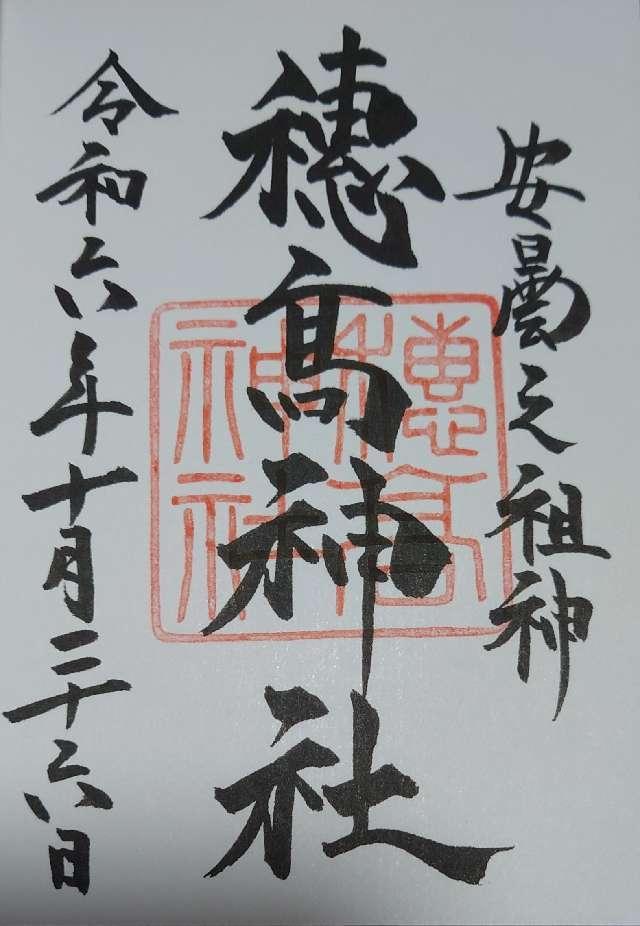 安曇之祖神
穂髙神社
穂高神社
令和六年十月二十六日